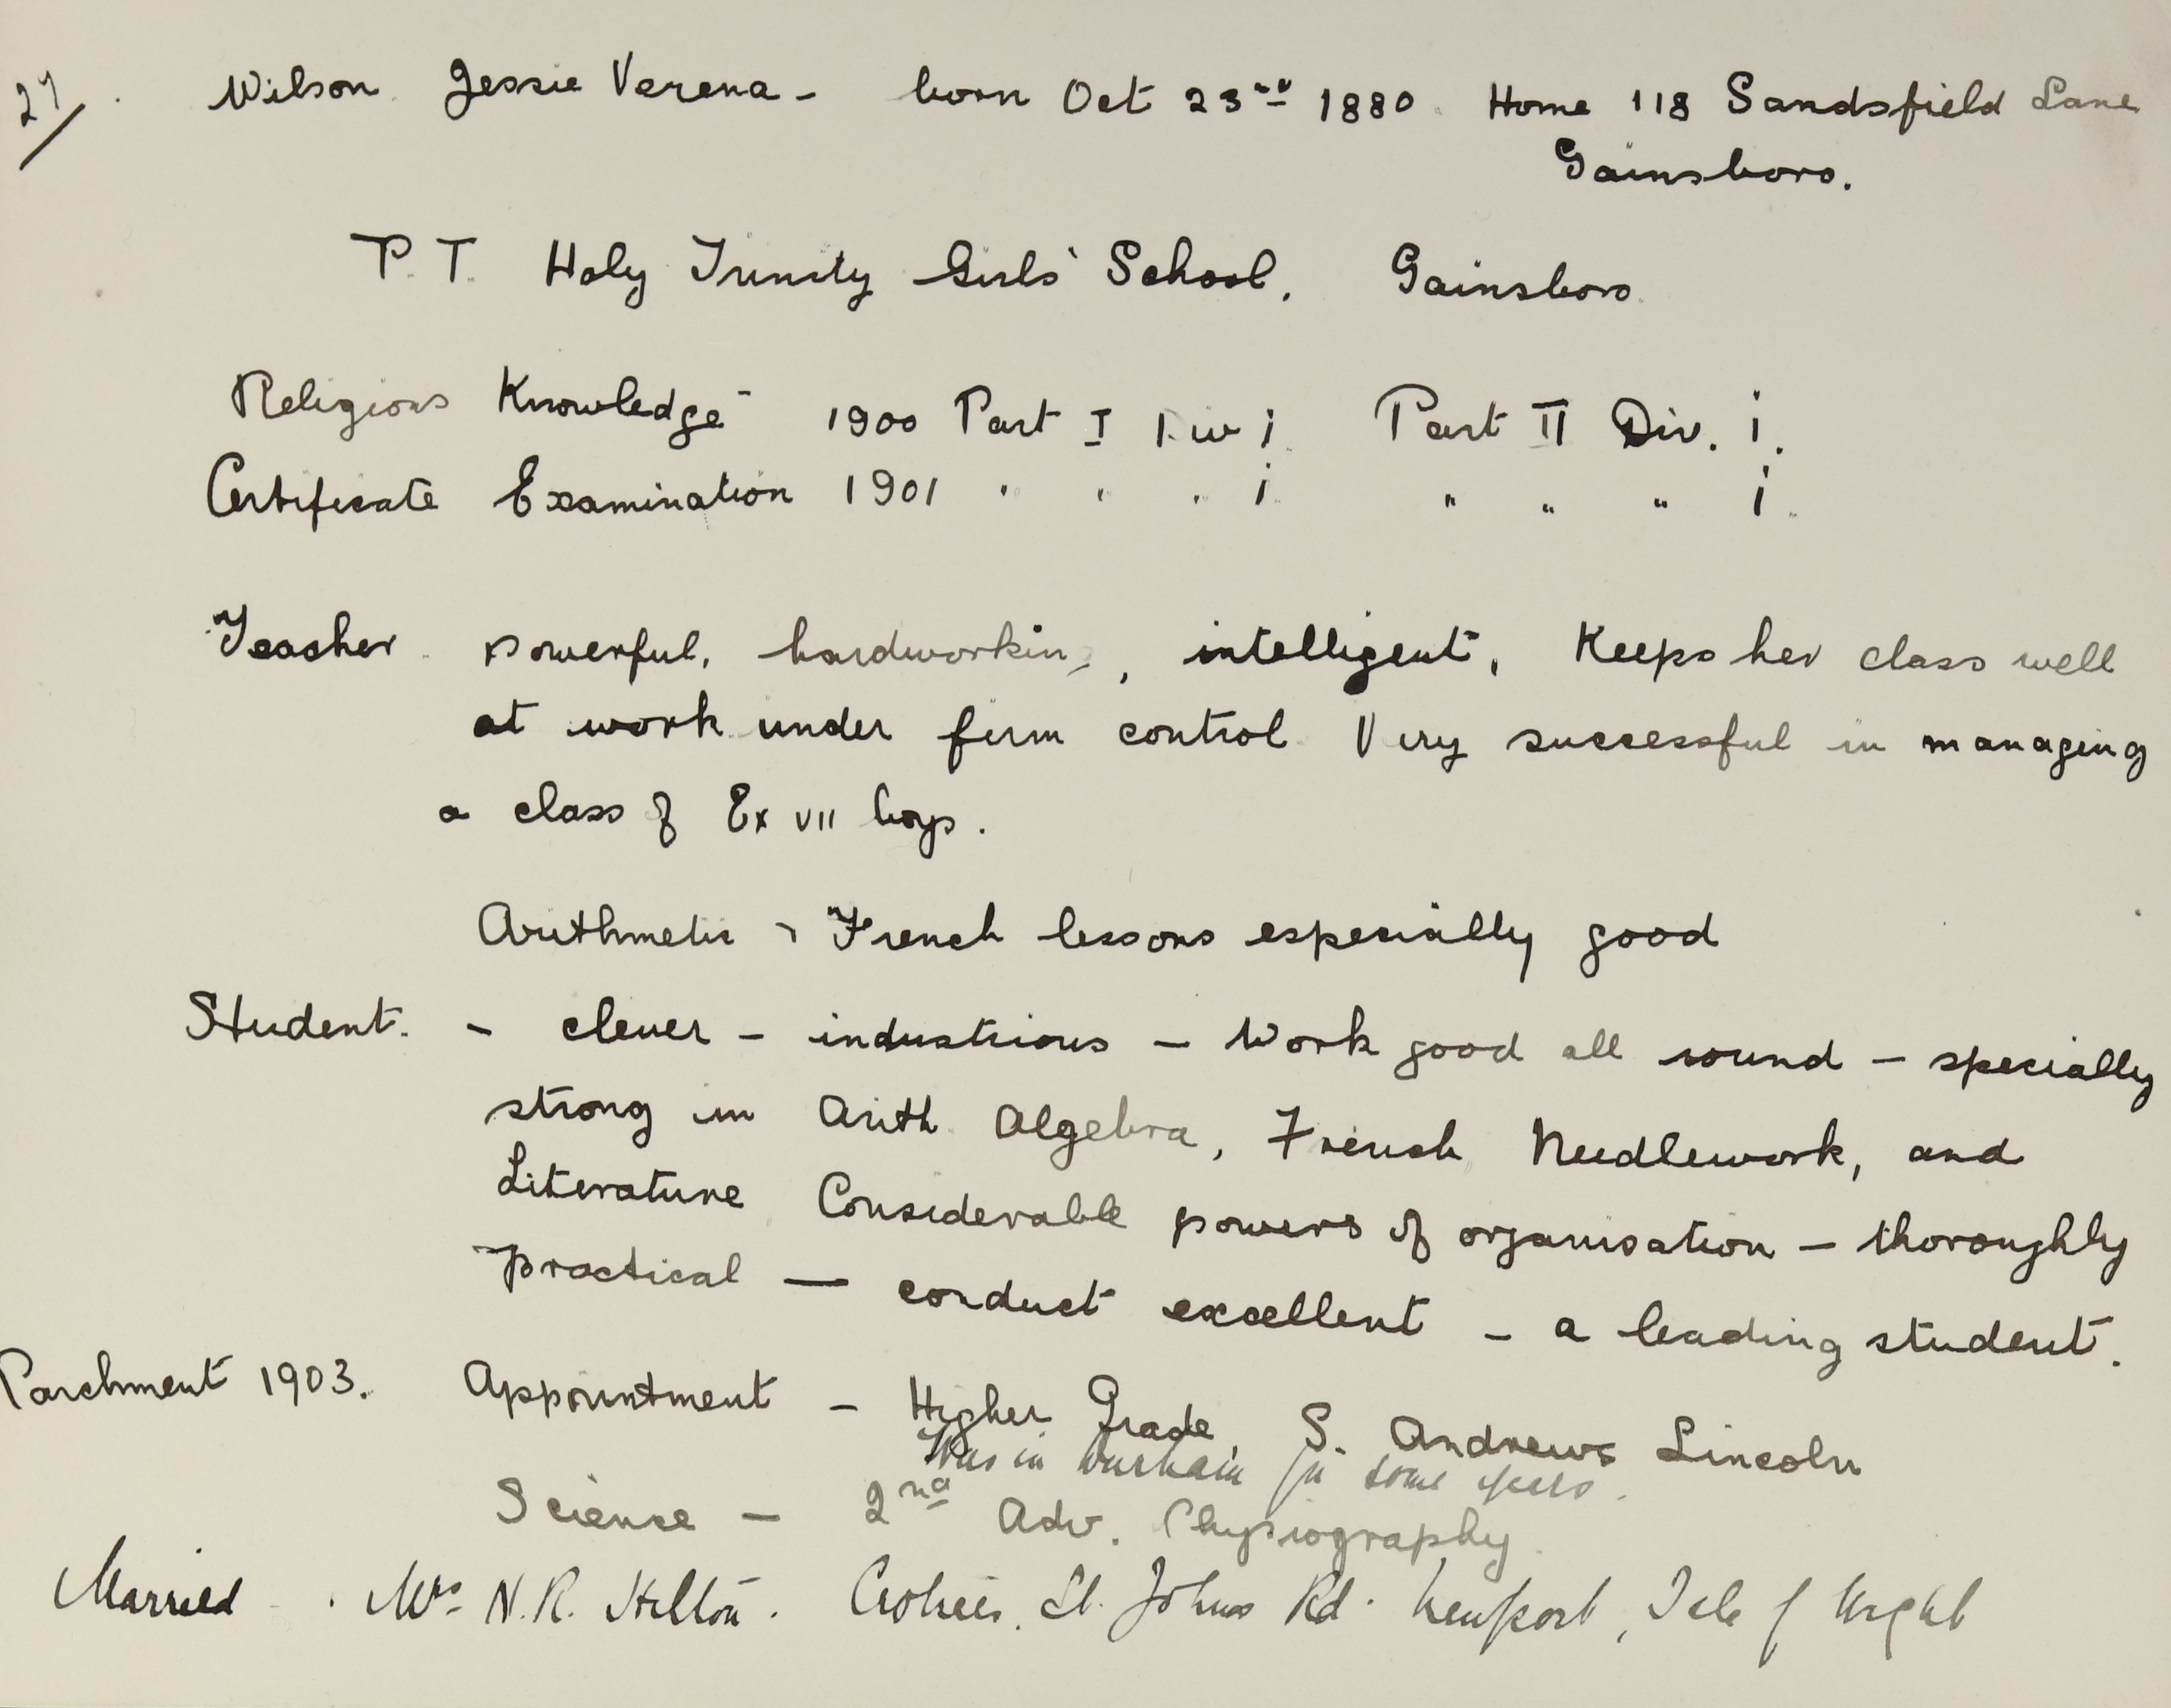 27/. Wilson Jessie Verena - born Oct 23rd 1880. Home 118 Sandsfield Lane
Gainsboro.
P.T. Holy Trinity Girls' School, Gainsboro.
Religious Knowledge - 1900 Part I Div i. Part II Div. i.
Certificate Examination 1901 " " " i. " " " i.
Teacher. powerful, hardworking, intelligent, Keeps her class well
at work under firm control. Very successful in managing
a class of Ex VII boys.
Arithmetic & French lessons especially good
Student. - clever - industrious - Work good all round - specially
strong in Arith. Algebra, French, Needlework, and
Literature. Considerable powers of organisation - thoroughly
practical - conduct excellent - a leading student.
Parchment 1903. Appointment - Higher Grade, S. Andrews Lincoln
Was in Durham for some years.
Science - 2nd Adv. Physiography.
Married. Mrs N.R. Hilton. St. Johns Rd. Newport, Isle of Wight